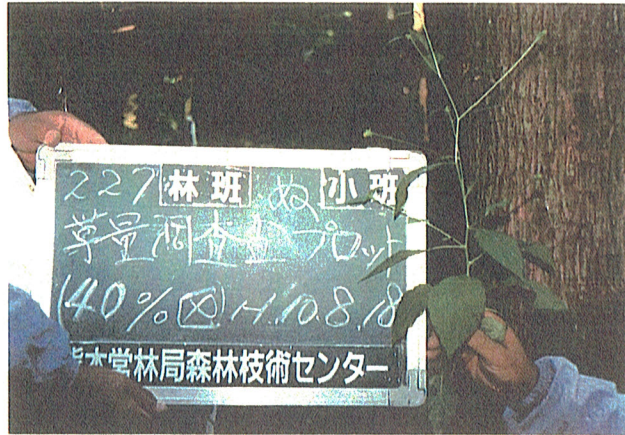 227 林班 ぬ 小班
草量調査プロット
(40%区) H.10.8.18
熊本営林局森林技術センター